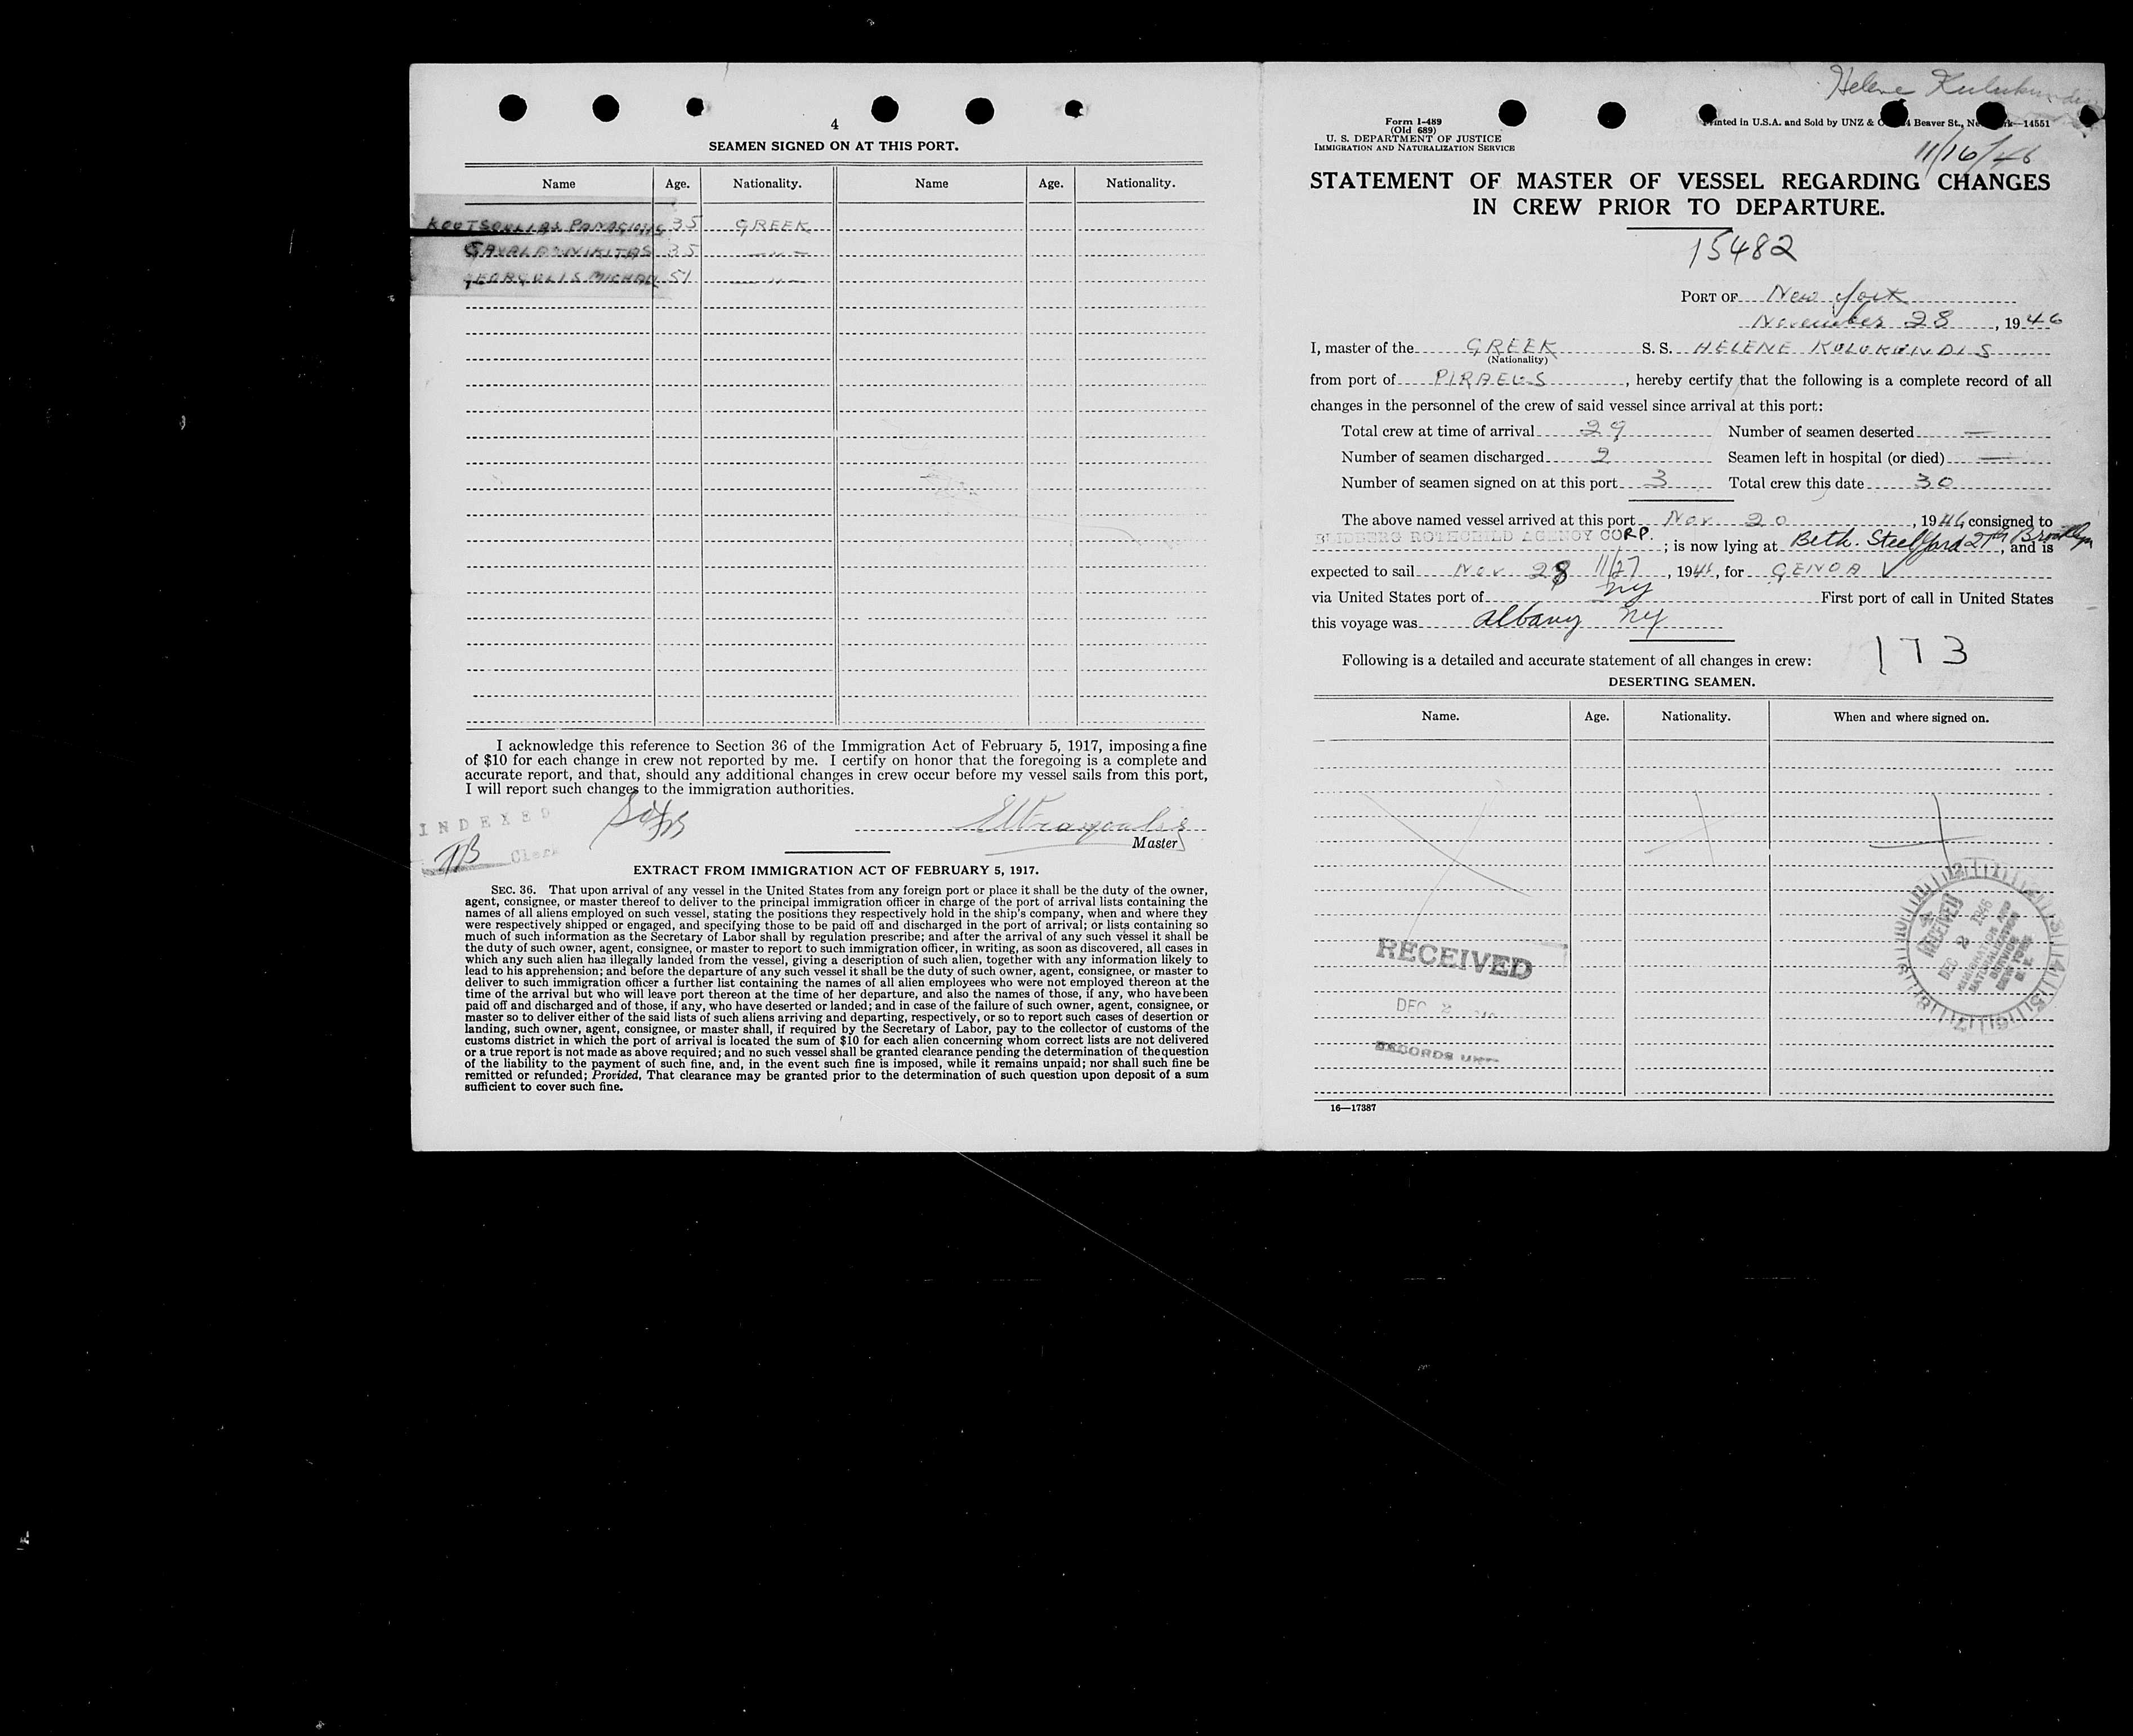 4
SEAMEN SIGNED ON AT THIS PORT.
Name Age. Nationality. Name Age. Nationality.
35 GREEK
NIKITAS 35 -"-
MICHAEL 51 -"-
I acknowledge this reference to Section 36 of the Immigration Act of February 5, 1917, imposing a fine
of $10 for each change in crew not reported by me. I certify on honor that the foregoing is a complete and
accurate report, and that, should any additional changes in crew occur before my vessel sails from this port,
I will report such changes to the immigration authorities.
INDEXED
Clerk
Master
EXTRACT FROM IMMIGRATION ACT OF FEBRUARY 5, 1917.
SEC. 36. That upon arrival of any vessel in the United States from any foreign port or place it shall be the duty of the owner,
agent, consignee, or master thereof to deliver to the principal immigration officer in charge of the port of arrival lists containing the
names of all aliens employed on such vessel, stating the positions they respectively hold in the ship's company, when and where they
were respectively shipped or engaged, and specifying those to be paid off and discharged in the port of arrival; or lists containing so
much of such information as the Secretary of Labor shall by regulation prescribe; and after the arrival of any such vessel it shall be
the duty of such owner, agent, consignee, or master to report to such immigration officer, in writing, as soon as discovered, all cases in
which any such alien has illegally landed from the vessel, giving a description of such alien, together with any information likely to
lead to his apprehension; and before the departure of any such vessel it shall be the duty of such owner, agent, consignee, or master to
deliver to such immigration officer a further list containing the names of all alien employees who were not employed thereon at the
time of the arrival but who will leave port thereon at the time of her departure, and also the names of those, if any, who have been
paid off and discharged and of those, if any, who have deserted or landed; and in case of the failure of such owner, agent, consignee, or
master so to deliver either of the said lists of such aliens arriving and departing, respectively, or so to report such cases of desertion or
landing, such owner, agent, consignee, or master shall, if required by the Secretary of Labor, pay to the collector of customs of the
customs district in which the port of arrival is located the sum of $10 for each alien concerning whom correct lists are not delivered
or a true report is not made as above required; and no such vessel shall be granted clearance pending the determination of the question
of the liability to the payment of such fine, and, in the event such fine is imposed, while it remains unpaid; nor shall such fine be
remitted or refunded; Provided, That clearance may be granted prior to the determination of such question upon deposit of a sum
sufficient to cover such fine.
Helene
Form I-489
(Old 689)
U. S. DEPARTMENT OF JUSTICE
IMMIGRATION AND NATURALIZATION SERVICE
Printed in U.S.A. and Sold by UNZ & Beaver St., 14551
11/16/46
STATEMENT OF MASTER OF VESSEL REGARDING CHANGES
IN CREW PRIOR TO DEPARTURE.
15482
PORT OF New York
November 28, 1946
I, master of the GREEK S. S. HELENE KULUKUNDIS
(Nationality)
from port of PIRAEUS, hereby certify that the following is a complete record of all
changes in the personnel of the crew of said vessel since arrival at this port:
Total crew at time of arrival 29 Number of seamen deserted —
Number of seamen discharged 2 Seamen left in hospital (or died) —
Number of seamen signed on at this port 3 Total crew this date 30
The above named vessel arrived at this port Nov. 20, 1946, consigned to
BLIDBERG ROTHCHILD AGENCY CORP.; is now lying at Beth. Steel yard 27th Brooklyn, and is
expected to sail Nov. 28 11/27, 1946, for GENOA
via United States port of NY First port of call in United States
this voyage was Albany NY
Following is a detailed and accurate statement of all changes in crew:
173
DESERTING SEAMEN.
Name. Age. Nationality. When and where signed on.
RECEIVED
DEC 2 1946
IMMIGRATION AND
NATURALIZATION
SERVICE
NEW YORK
N. Y.
RECEIVED
DEC 2
RECORDS UNIT
16—17387